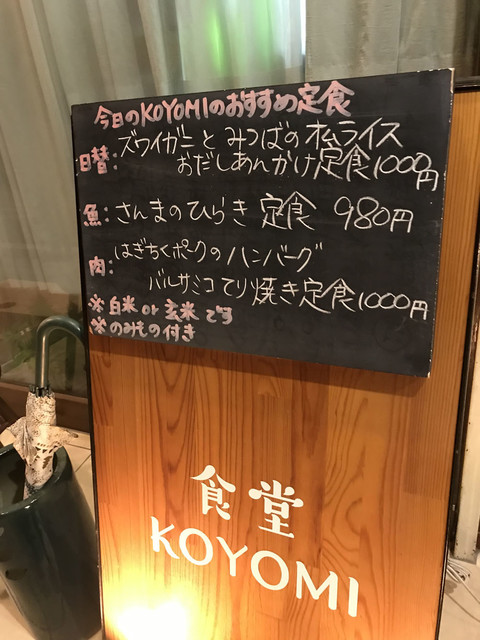 今日のKOYOMIのおすすめ定食
日替:ズワイガニとみつばのオムライス
おだしあんかけ定食1000円
魚:さんまのひらき定食 980円
肉:はぎちくポークのハンバーグ
バルサミコてり焼き定食1000円
※白米or玄米です
※のみもの付き
食堂
KOYOMI